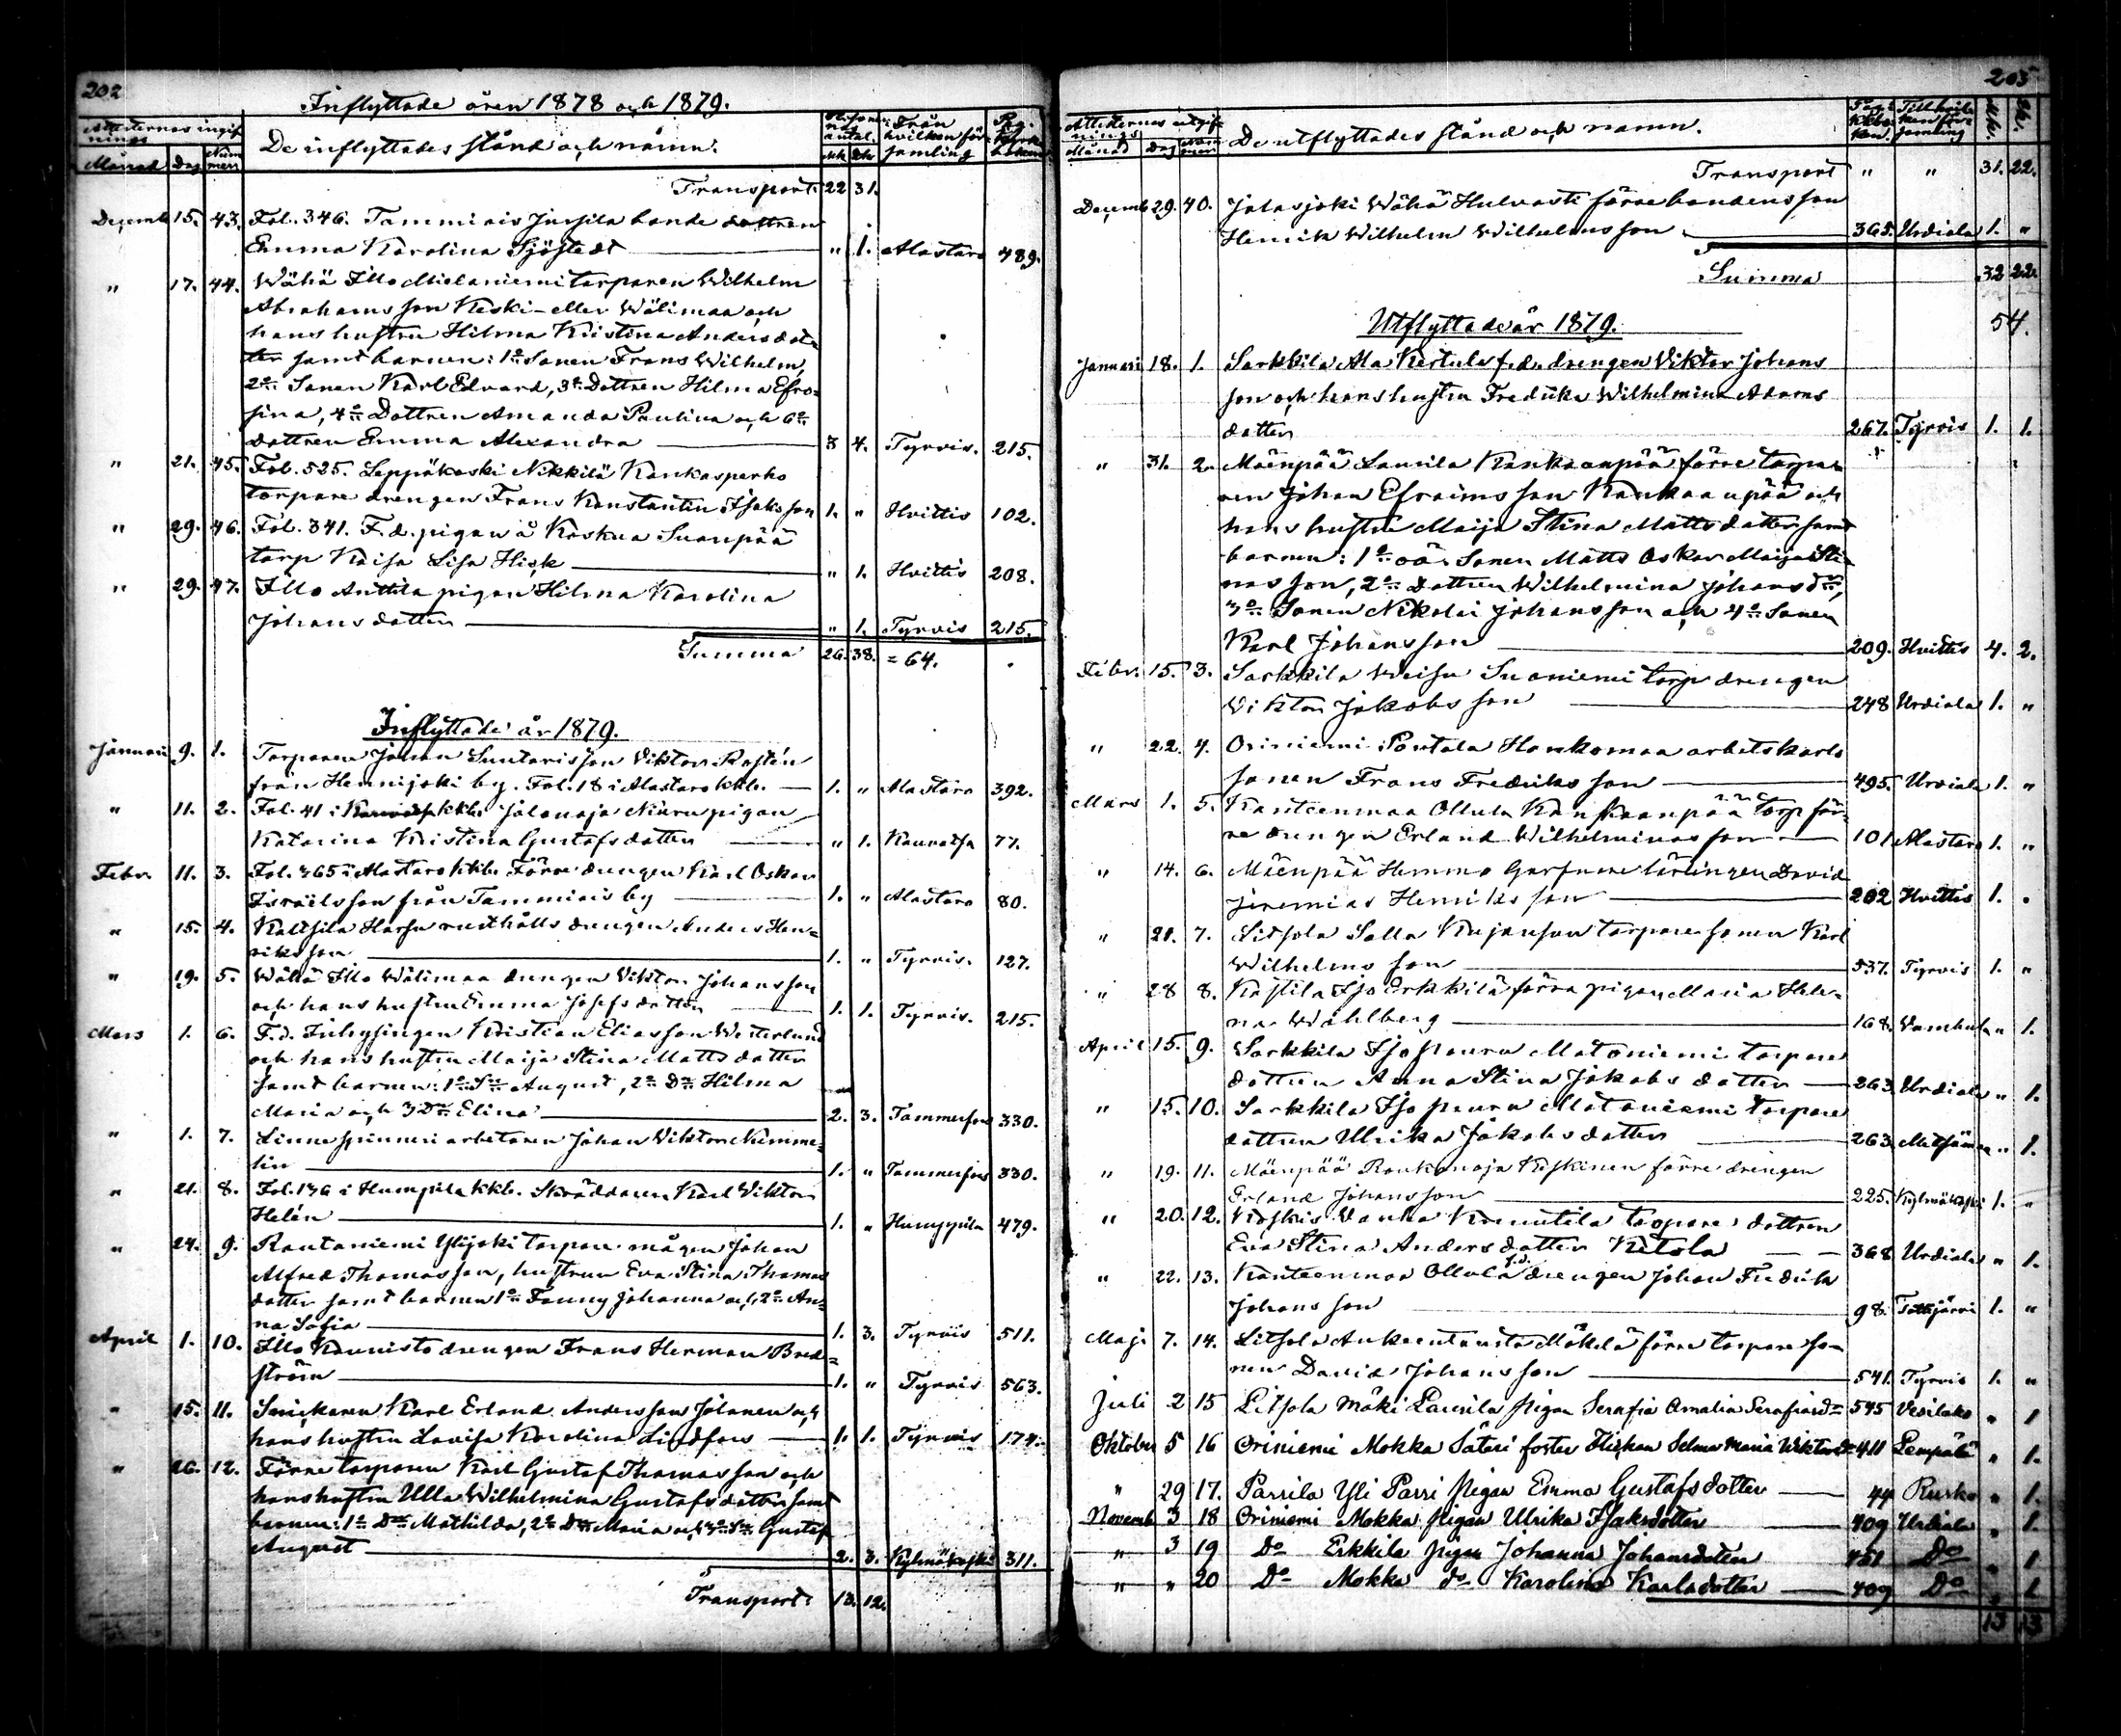 202
Inflyttade åren 1878 och 1879.
Attesternas ingif
nings
Månad Dag Num
mer
De inflyttades stånd och namn.
antal.
mk qk
Från
hvilken för
samling
Transport 22 31.
Decemb 15. 43. Fol. 346. Tammiais Jussila bonde dottren
Emma Karolina Sjöstedt " 1. Alastaro 489.
" 17. 44. Wähä Illo Mielaniemi torparen Wilhelm
Abrahamsson Keski- eller Wälimaa och
hans hustru Hilma Kristina Andersdot-
ter samt barnen: 1o Sonen Frans Wilhelm,
2o Sonen Karl Edvard, 3o Dottren Hilma Efro-
sina, 4o Dottren Amanda Paulina och 6o
dottren Emma Alexandra 3 4. Tyrvis. 215.
" 21. 45. Fol. 525. Leppäkoski Nikkilä Kankasperko
torpare drengen Frans Konstantin Isaksson 1. " Hvittis 102.
" 29. 46. Fol. 341. F.d. pigan å Koskua Suonpää
torp Kaisa Lisa Hisk " 1. Hvittis 208.
" 29. 47. Illo Anttila pigan Hilma Karolina
Johansdotter " 1. Tyrvis 215.
Summa 26. 38. = 64.
Inflyttade år 1879.
Januari 9. 1. Torparen Johan Suntarisson Viktor Rostén
från Hennijoki by. Fol. 18 i Alastaro kkb. 1. " Alastaro 392.
" 11. 2. Fol. 41 i kkb. Jalonoja Niuru pigan
Katarina Kristina Gustafsdotter " 1. Kauvatsa 77.
Febr. 11. 3. Fol. 365 i Alastaro kkb. Förre drengen Karl Oskar
Israelsson från Tammiais by 1. " Alastaro 80.
" 15. 4. Kaltsila Harsu rusthålls drengen Anders Hen-
riksson 1. " Tyrvis. 127.
" 19. 5. Wähä Illo Wälimaa drengen Viktor Johansson
och hans hustru Emma Josefsdotter 1. 1. Tyrvis. 215.
Mars 1. 6. F.d. Inhysingen Kristian Eliasson Westerlund
och hans hustru Maija Stina Mattsdotter
samt barnen: 1o Sn August, 2o Dn Hilma
Maria och 3 Dn Elina 2. 3. Tammerfors 330.
" 1. 7. Linnespinneri arbetaren Johan Viktor Numme-
lin 1. " Tammerfors 330.
" 21. 8. Fol. 136 i Humpila kkb. Skräddaren Karl Viktor
Helén 1. " Humppila 479.
" 24. 9. Rautaniemi Ylijoki torpare mågen Johan
Alfred Thomasson, hustrun Eva Stina Thomas
dotter samt barnen 1o Fanny Johanna och 2o An-
na Sofia 1. 3. Tyrvis 511.
April 1. 10. Illo Kaunisto drengen Frans Herman Bred-
ström 1. " Tyrvis 563.
" 15. 11. Snickaren Karl Erland Andersson Jolanen och
hans hustru Lovisa Karolina Lindfors 1. 1. Tyrvis 174.
" 26. 12. Förre torparen Karl Gustaf Thomasson och
hans hustru Ulla Wilhelmina Gustafsdotter samt
barnen: 1o Dn Mathilda, 2o Dn Maria och 3o Sn Gustaf
August 2. 3. Kylmäkoski 311.
Transport 13. 12.
203
Attesternas utgif
nings
Månad Dag Num
mer
De utflyttades stånd och namn.
Till hvil-
ken för-
samling
mk. qk.
Transport " " 31. 22.
Decemb 29. 40. Jalasjoki Wähä Hulvasti förre bondens son
Henrik Wilhelm Wilhelmsson 365. Urdiala 1. "
Summa 32 22.
54.
Utflyttade år 1879.
Januari 18. 1. Sarkkila Ala Kertula f.d. drengen Viktor Johans
son och hans hustru Fredrika Wilhelmina Adams
dotter 267. Tyrvis 1. 1.
" 31. 2. Mäenpää Laurila Kankaanpää förre torpa-
ren Johan Efraimsson Kankaanpää och
hans hustru Maija Stina Mattsdotter samt
barnen: 1o oä. Sonen Matts Oskar Maija Sti-
nasson, 2o Dottren Wilhelmina Johansdr,
3o Sonen Nikolai Johansson och 4o Sonen
Karl Johansson 209. Hvittis 4. 2.
Febr. 15. 3. Sarkkila Weisu Suoniemi torp drengen
Viktor Jakobsson 248 Urdiala 1. "
" 22. 4. Oriniemi Pontala Honkomaa arbetskarls
sonen Frans Fredriksson 495. Urdiala 1. "
Mars 1. 5. Kanteenmaa Ollula Kankaanpää torp för-
re drengen Erland Wilhelminasson 101 Alastaro 1. "
" 14. 6. Mäenpää Hemmo Garfvare lärlingen David
Jeremias Henriksson 202 Hvittis 1. "
" 21. 7. Liitsola Salla Kujanpään torpare sonen Karl
Wilhelmsson 537. Tyrvis 1. "
" 28 8. Kastila Iso Erkkilä förra pigan Maria Hele-
na Wahlberg 168. Vambula " 1.
April 15. 9. Sarkkila Iso Matoniemi torpare
dottren Anna Stina Jakobsdotter 263 Urdiala " 1.
" 15. 10. Sarkkila Iso Matoniemi torpare
dottren Ulrika Jakobsdotter 263. " 1.
" 19. 11. Mäenpää Raukonoja Kiskinen förre drengen
Erland Johansson 225. Kylmäkoski 1. "
" 20. 12. Vanha Kraunutila torpare dottren
Eva Stina Andersdotter Kitola 368 Urdiala " 1.
" 22. 13. Kanteenmaa Ollula f.d. drengen Johan Fredrik
Johansson 98. Tottijärvi 1. "
Maj 7. 14. Liitsola Mäkelä förre torpare so-
nen David Johansson 541. Tyrvis 1. "
Juli 2 15 Litsola Mäki Laurila Pigan Serafia Amalia Serafiasd= 545 Vesilaks " 1
Oktober 5 16 Oriniemi Mokka Säteri foster flickan Selma Maria Wiktorsdr 411 Lempälä " 1.
" 29 17. Parrila Yli Parri Pigan Emma Gustafsdotter 44 Rusko " 1.
Novemb 3 18 Oriniemi Mokka Pigan Ulrika Isaksdotter 409 Urdiala " 1.
" 3 19 Do Erkkila Pigan Johanna Johansdotter 451 Do " 1
" " 20 Do Mokka do Karolina Karlsdotter 409 Do " 1
13 13